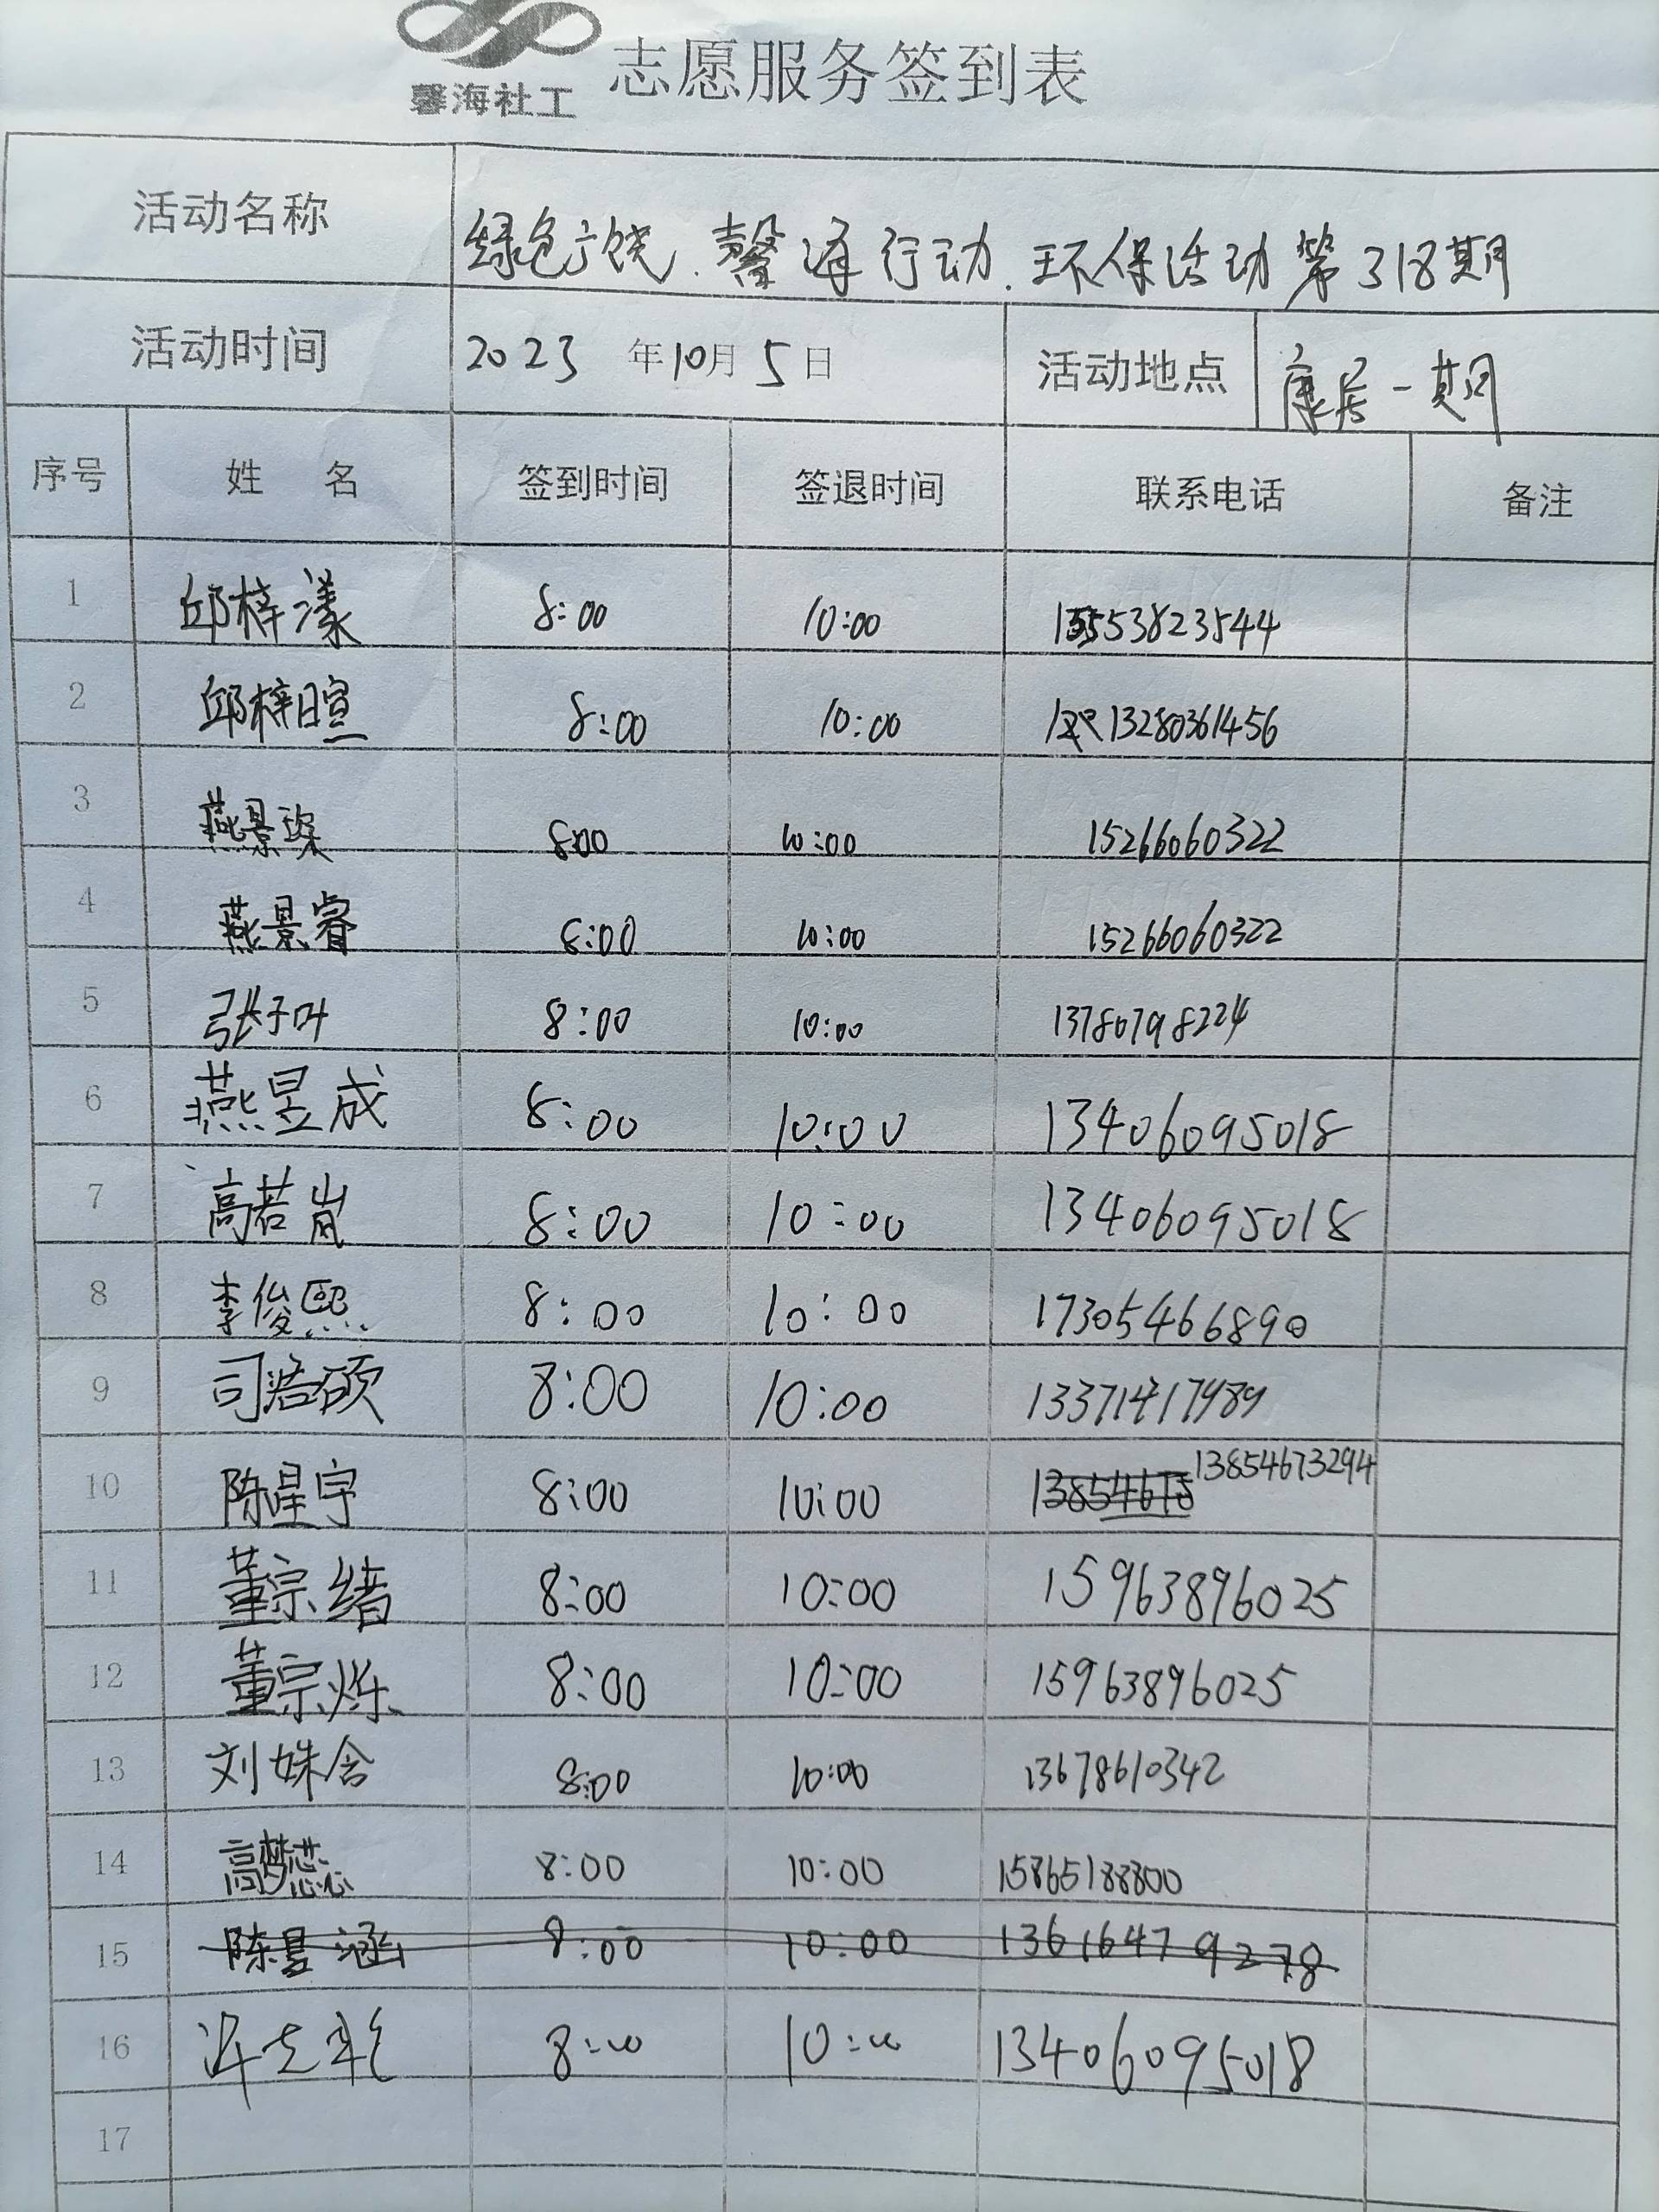 馨海社工 志愿服务签到表
活动名称 绿色广饶.馨海行动.环保活动第318期
活动时间 2023年10月5日 活动地点 康居一期
序号 姓名 签到时间 签退时间 联系电话 备注
1 邱梓漾 8:00 10:00 15553823544
2 邱梓暄 8:00 10:00 13280361456
3 燕景琛 8:00 10:00 15266060322
4 燕景睿 8:00 10:00 15266060322
5 张子叶 8:00 10:00 13780798224
6 燕昱成 8:00 10:00 13406095018
7 高若岚 8:00 10:00 13406095018
8 李俊熙 8:00 10:00 17305466890
9 司浩硕 8:00 10:00
10 陈星宇 8:00 10:00 13854673294
11 董宗绪 8:00 10:00 15963896025
12 董宗烁 8:00 10:00 15963896025
13 刘姝含 8:00 10:00 13678610342
14 高梦蕊 8:00 10:00 15865188800
15 陈昱涵 8:00 10:00 13616479278
16 8:00 10:00 13406095018
17